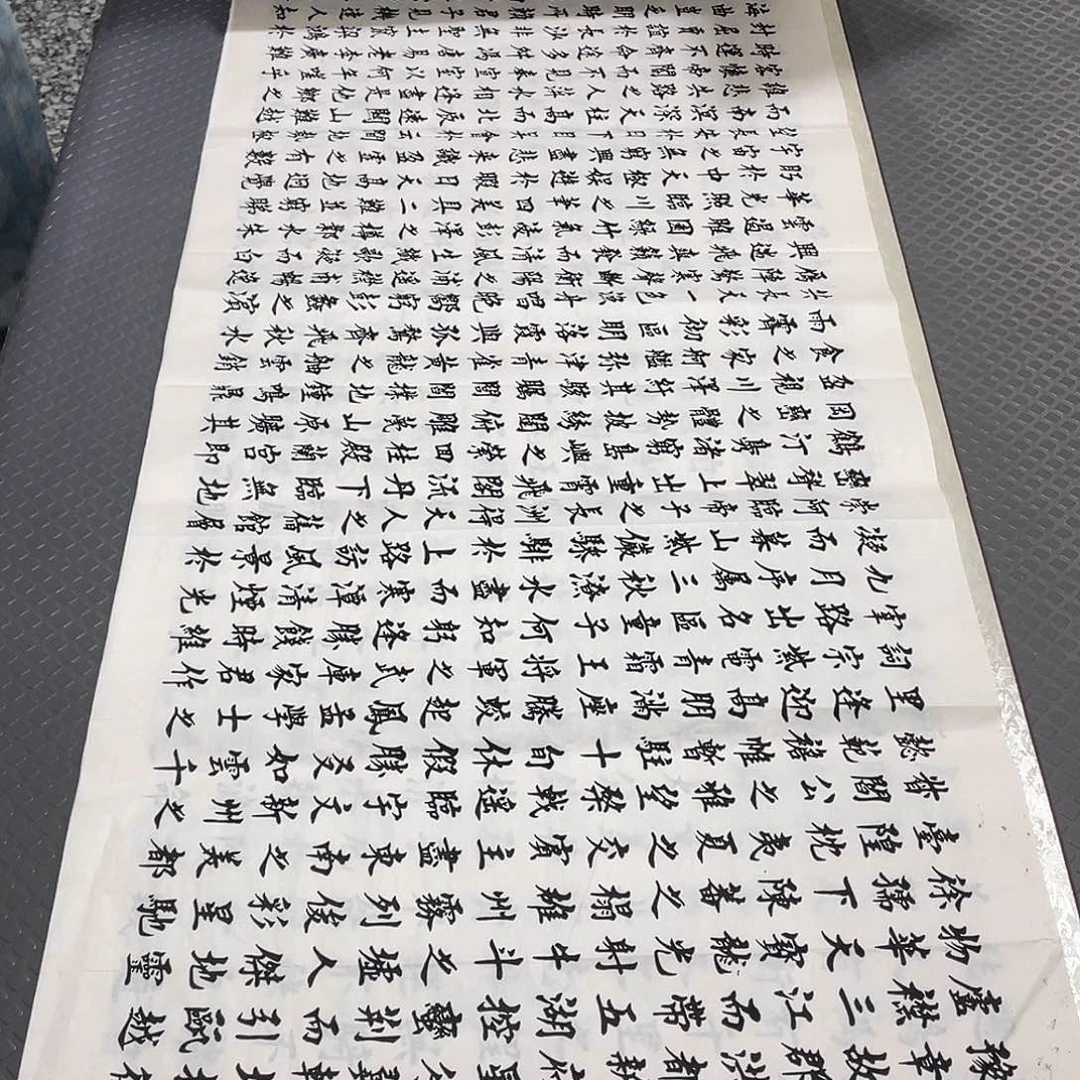 豫章故郡洪都新府星分翼軫地接衡
廬襟三江而帶五湖控蠻荊而引甌越
物華天寶龍光射牛斗之墟人傑地靈
徐孺下陳蕃之榻雄州霧列俊彩星馳
臺隍枕夷夏之交賓主盡東南之美都
督閻公之雅望棨戟遙臨宇文新州之
懿範襜帷暫駐十旬休假勝友如雲千
里逢迎高朋滿座騰蛟起鳳孟學士之
詞宗紫電青霜王將軍之武庫家君作
宰路出名區童子何知躬逢勝餞時維
九月序屬三秋潦水盡而寒潭清煙光
凝而暮山紫儼驂騑於上路訪風景於
崇阿臨帝子之長洲得天人之舊館層
巒聳翠上出重霄飛閣流丹下臨無地
鶴汀鳧渚窮島嶼之縈迴桂殿蘭宮即
岡巒之體勢披繡闥俯雕甍山原曠其
盈視川澤紆其駭矚閭閻撲地鐘鳴鼎
食之家舸艦彌津青雀黃龍之舳雲銷
雨霽彩徹區明落霞與孤鶩齊飛秋水
共長天一色漁舟唱晚響窮彭蠡之濱
雁陣驚寒聲斷衡陽之浦遙襟甫暢逸
興遄飛爽籟發而清風生纖歌凝而白
雲遏睢園綠竹氣凌彭澤之樽鄴水朱
華光照臨川之筆四美具二難並窮睇
眄於中天極娛遊於暇日天高地迥覺
宇宙之無窮興盡悲來識盈虛之有數
望長安於日下目吳會於雲間地勢極
而南溟深天柱高而北辰遠關山難越
誰悲失路之人萍水相逢盡是他鄉之
客懷帝閽而不見奉宣室以何年嗟乎
時運不齊命途多舛馮唐易老李廣難
封屈賈於長沙非無聖主竄梁鴻於
海曲豈乏明時所賴君子見機達人知